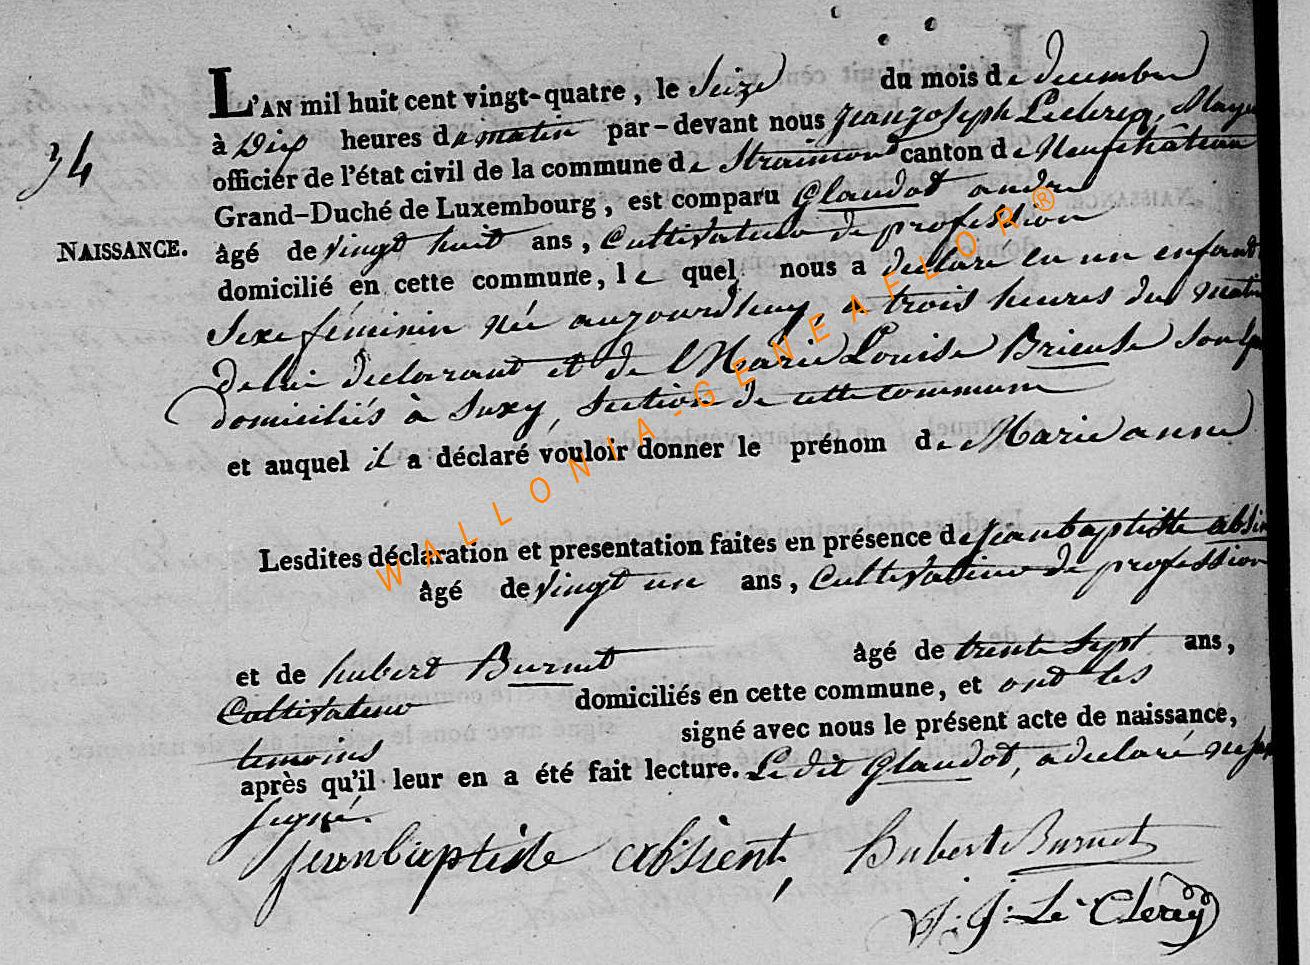 L'AN mil huit cent vingt-quatre, le Seize du mois de decembre
à Dix heures de matin par-devant nous jean joseph Leclercq, Mayeur
34
officier de l'état civil de la commune de Straimont canton de Neufchâteau
Grand-Duché de Luxembourg, est comparu Glaudot andre
NAISSANCE.
âgé de vingt huit ans, Cultivateur de profession
domicilié en cette commune, le quel nous a declaré en un enfant
Sexe féminin née aujourdhuy, a trois heures du matin
de lui declarant et de Marie Louise Brieuse son
domiciliés à Suxy, Section de cette commune
et auquel il a déclaré vouloir donner le prénom de Marie anne
Lesdites déclaration et presentation faites en présence de jean baptiste absient
âgé de vingt un ans, Cultivateur de profession
et de hubert Burnet âgé de trente Sept ans,
Cultivateur domiciliés en cette commune, et ont les
temoins signé avec nous le présent acte de naissance,
après qu'il leur en a été fait lecture. Le dit Glaudot, a declaré
signé.
jean baptiste absient, hubert Burnet
J. J. Le Clercq
WALLONIA-GENEAFLOR®